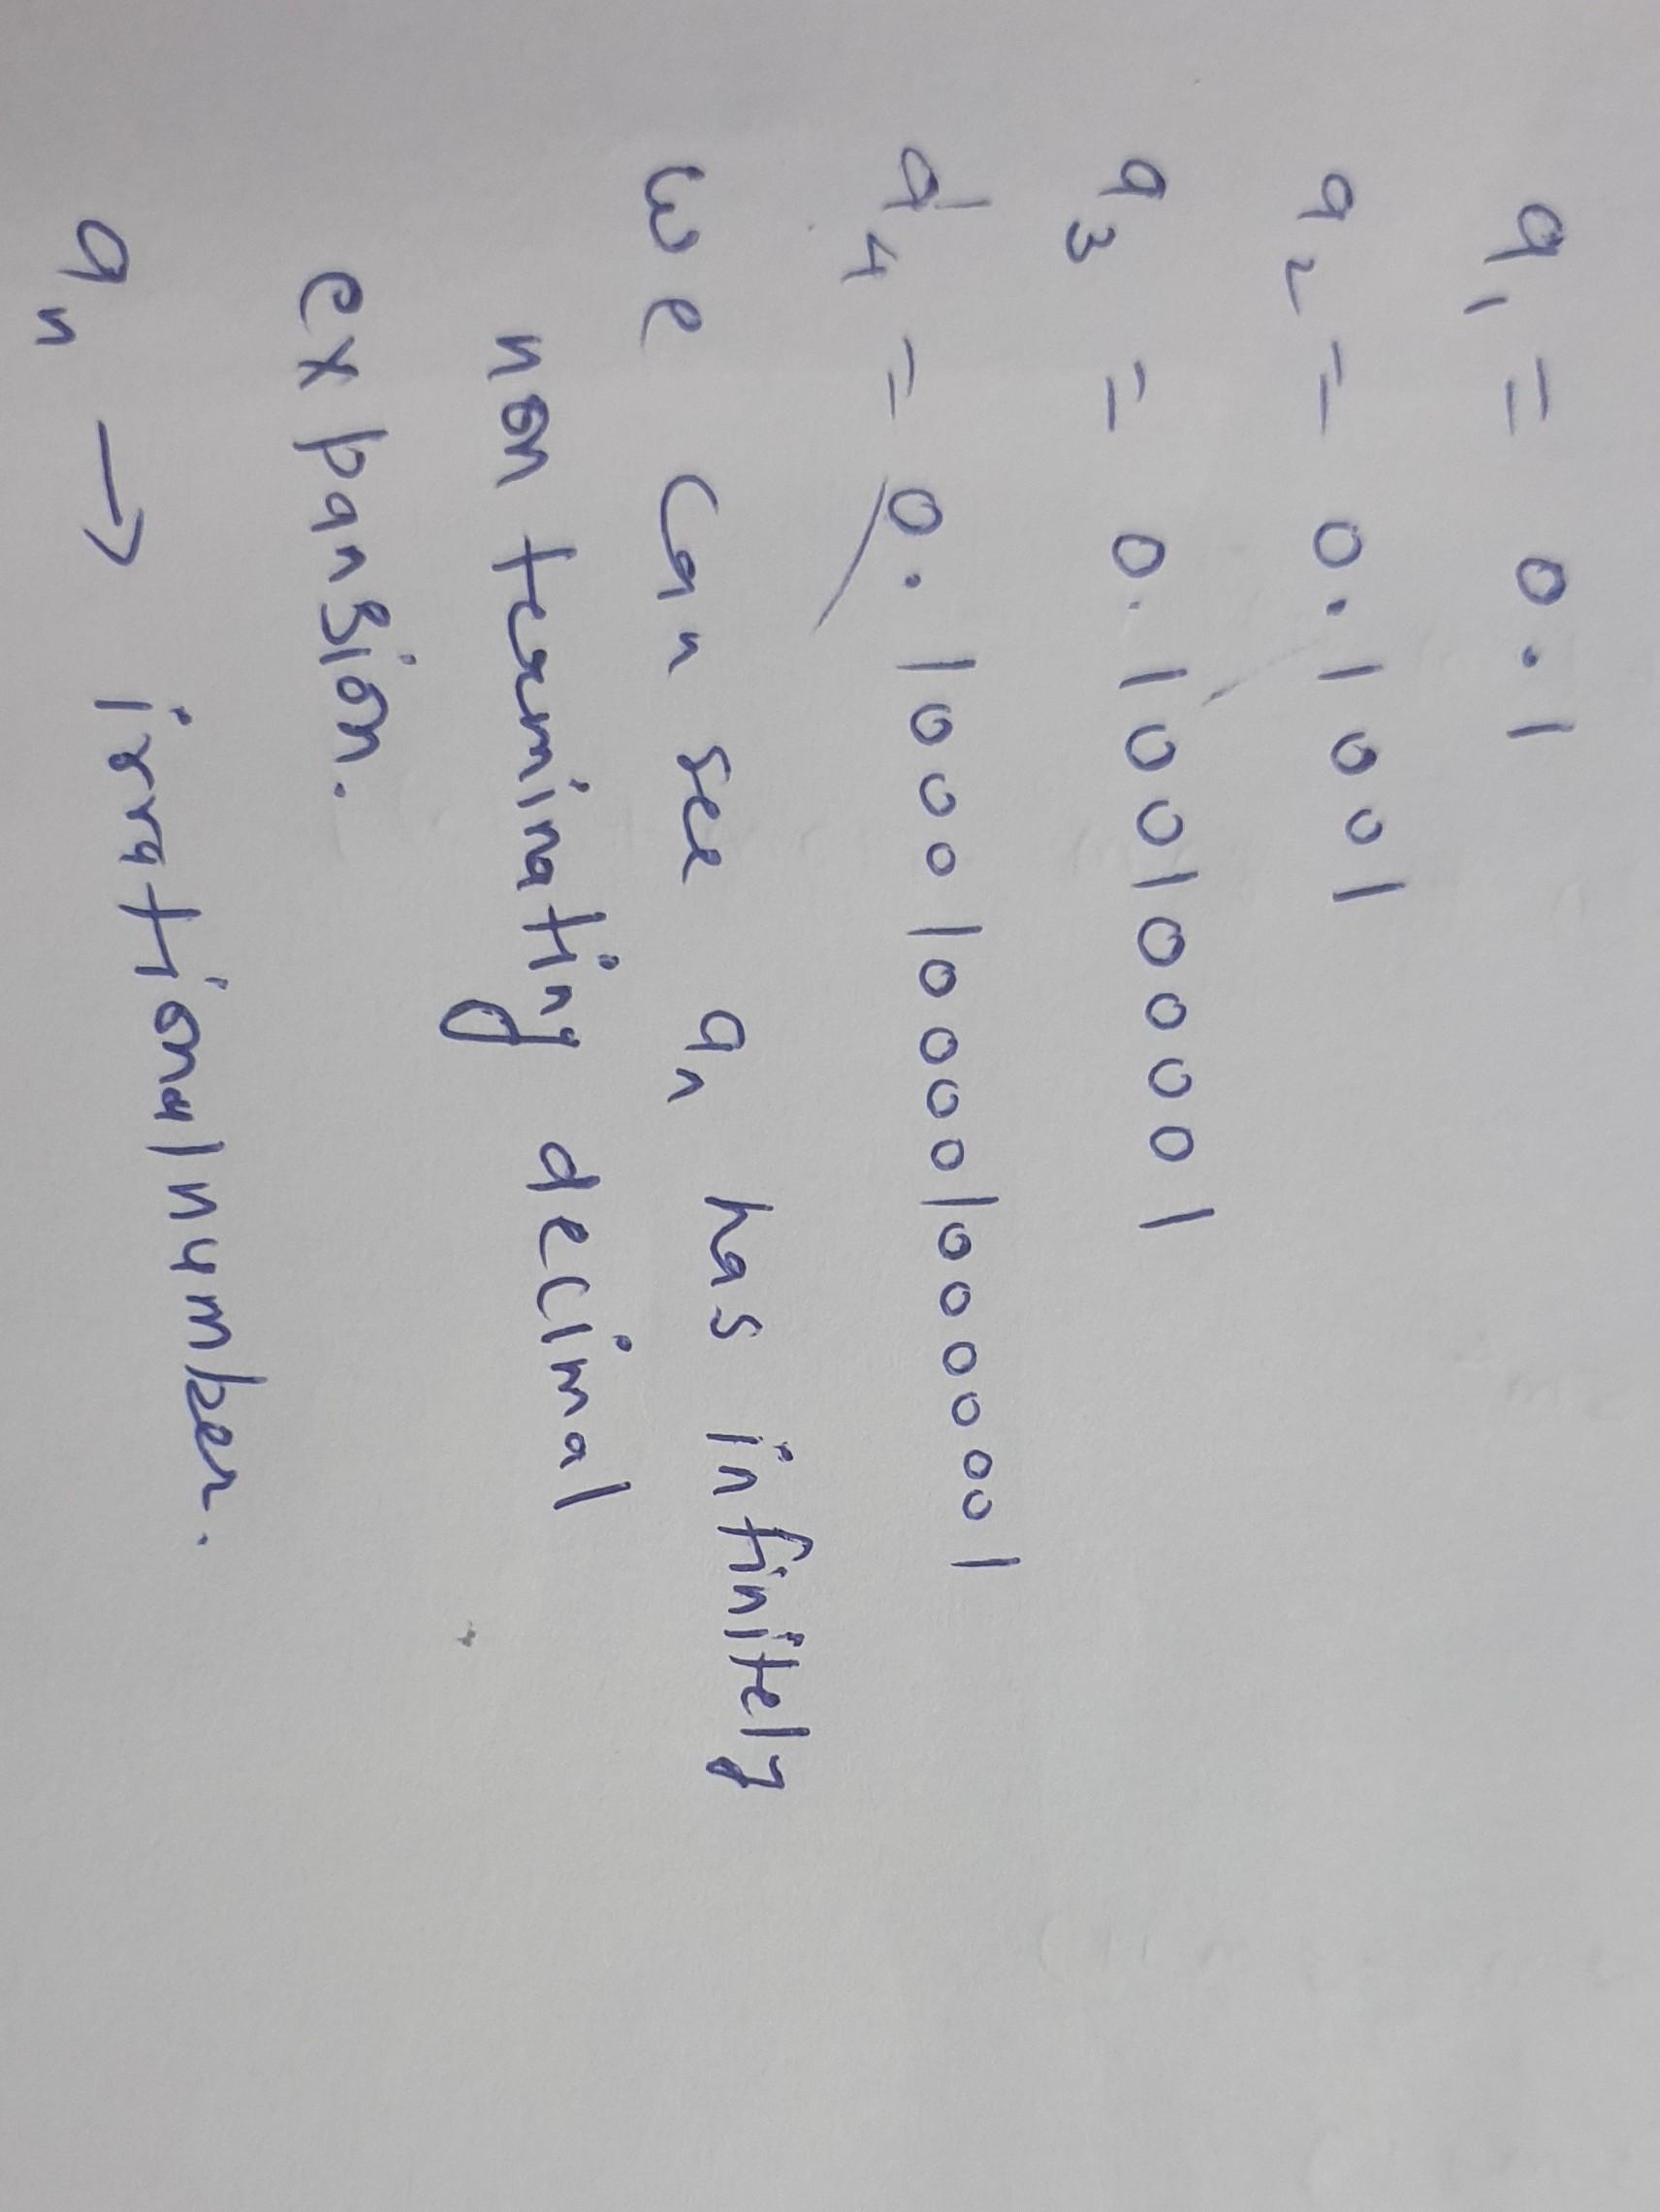 a₁ = 0.1
a₂ = 0.1001
a₃ = 0.100100001
a₄ = 0.10001000010000001
we can see aₙ has infinitely
non terminating decimal
expansion.
aₙ → irrational number.